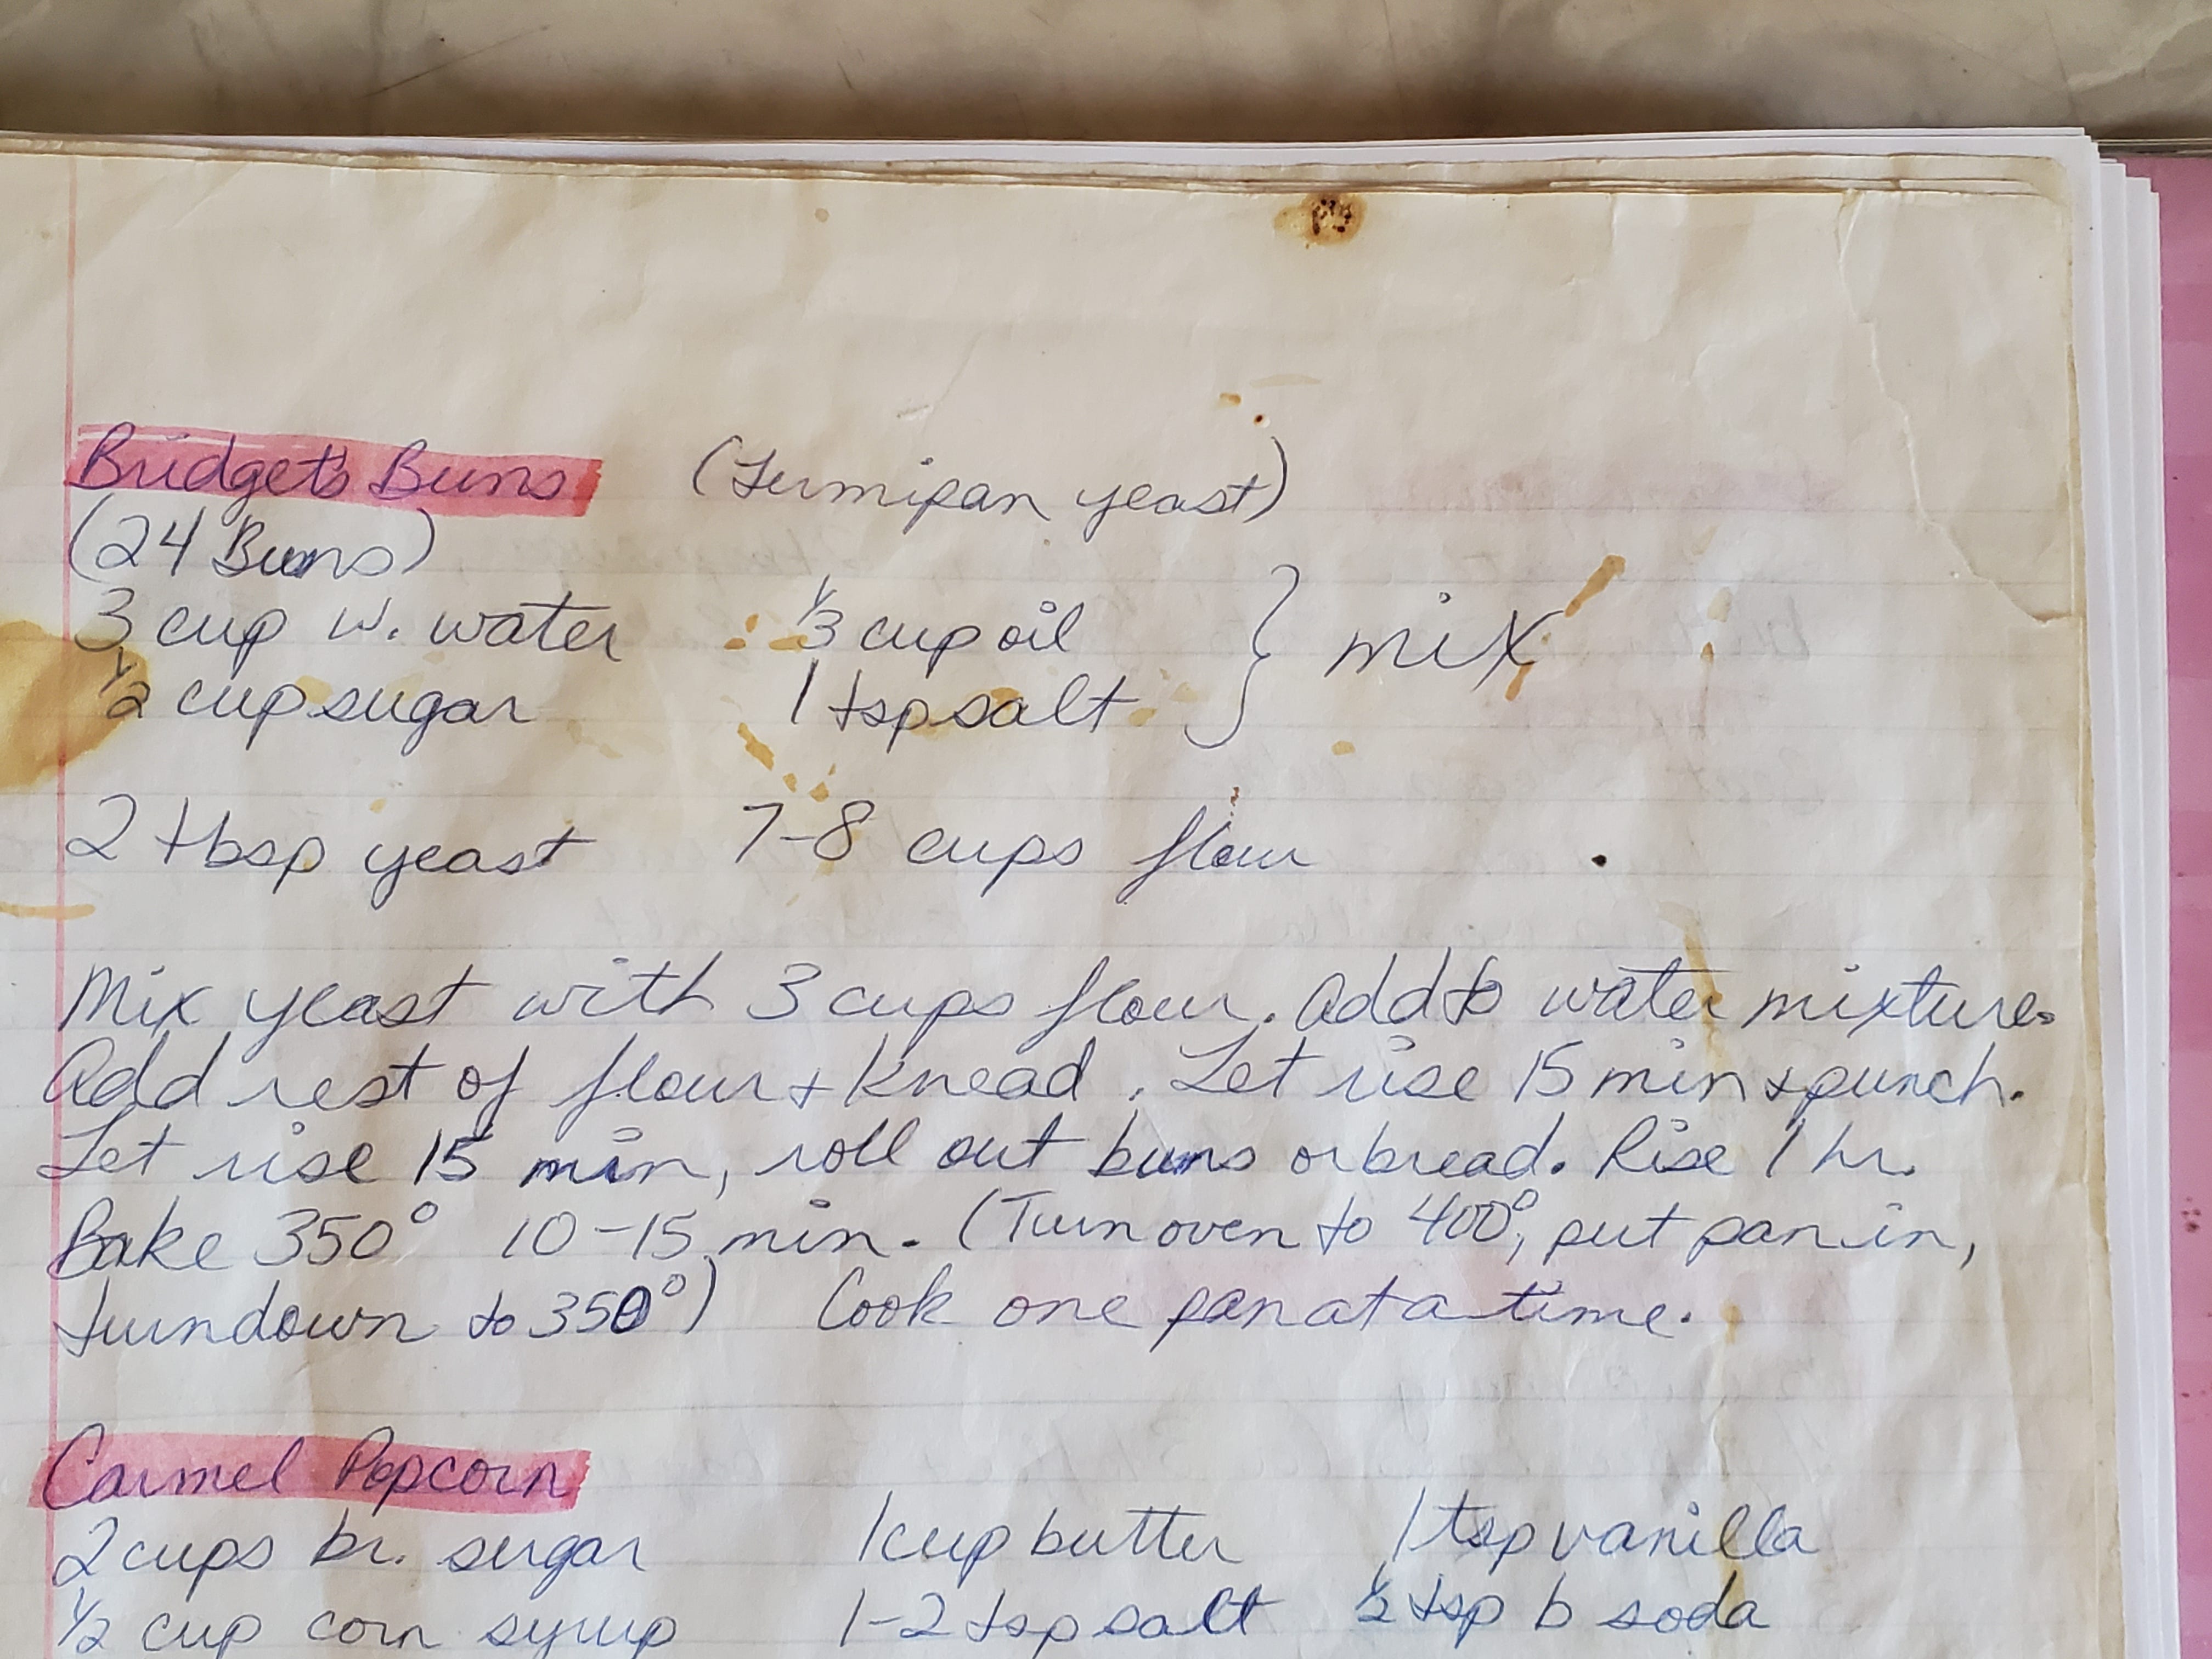 Bridget's Buns (Fermipan yeast)
(24 Buns)
3 cup w. water 1/3 cup oil } mix
1/2 cup sugar 1 tsp salt
2 tbsp yeast 7-8 cups flour
Mix yeast with 3 cups flour. Add to water mixture.
Add rest of flour + knead. Let rise 15 min + punch.
Let rise 15 min, roll out buns or bread. Rise 1 hr.
Bake 350° 10-15 min. (Turn oven to 400°, put pan in,
turn down to 350°) Cook one pan at a time.
Carmel Popcorn
2 cups br. sugar 1 cup butter 1 tsp vanilla
1/2 cup corn syrup 1-2 tsp salt 1/2 tsp b soda